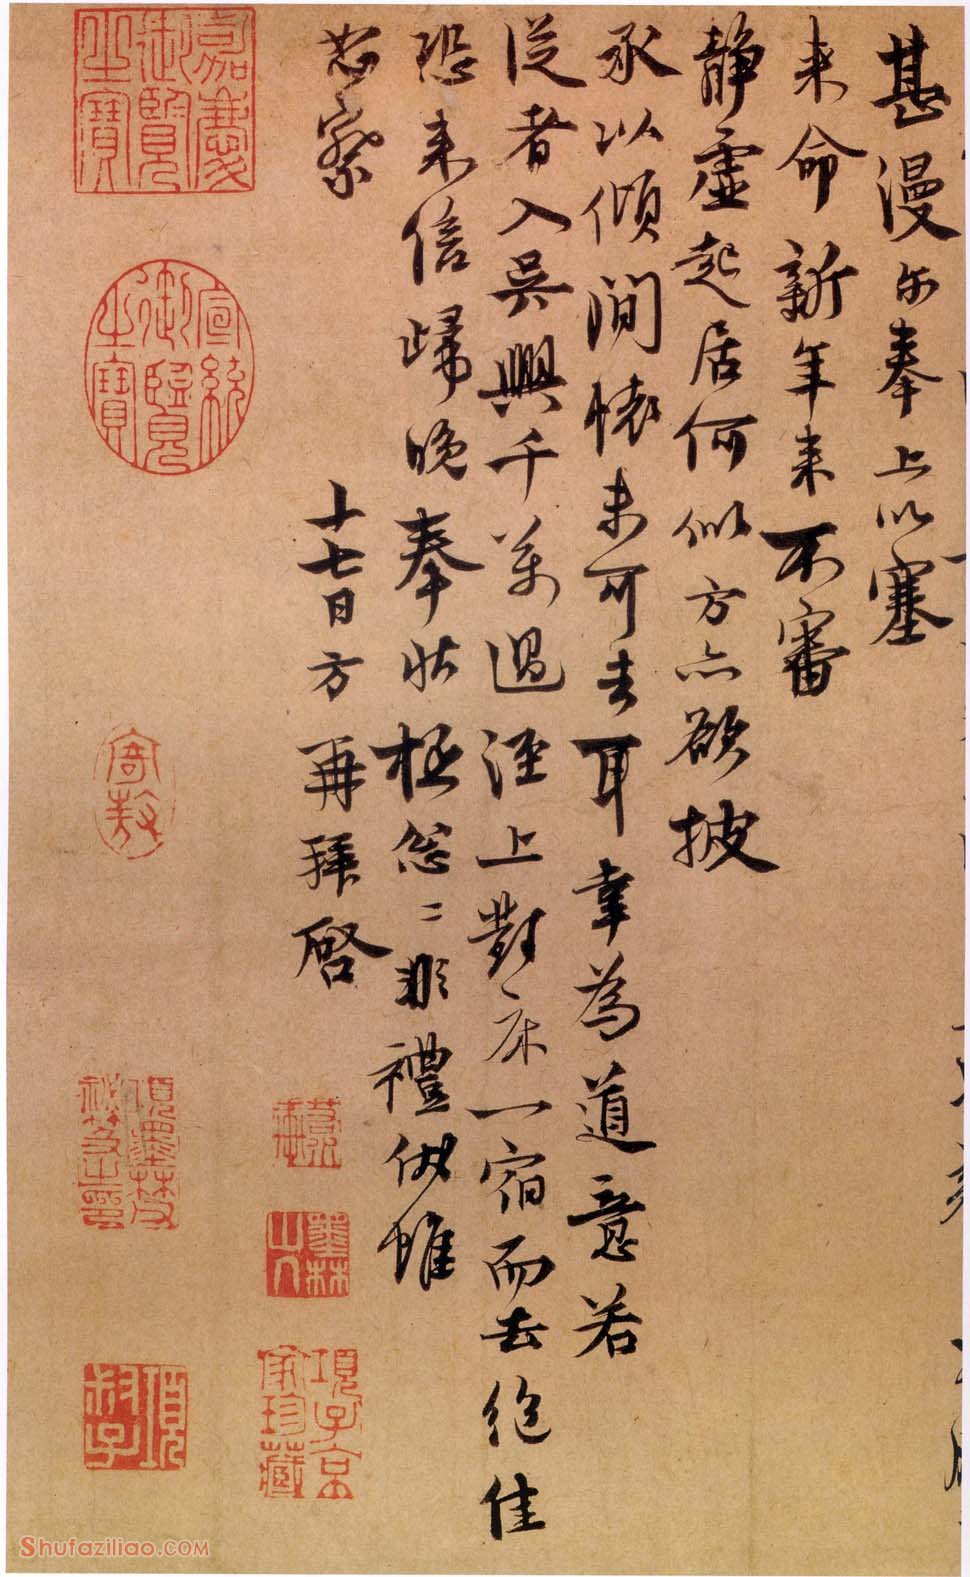 甚漫尔奉上以塞
来命新年来不審
静虚起居何似方亦欲披
承以傾澗懐未可去耳幸為道意若
従者入吳興千萬過涇上對床一宿而去絶佳
恐来信歸晚奉狀極怱〻非禮仍雖
恕察
十七日方再拜啓
嘉慶御覧之寶
宣統御覧之寶
寄敖
項墨林父秘笈之印
墨林山人
項子京家珍藏
項叔子
Shufaziliao.COM